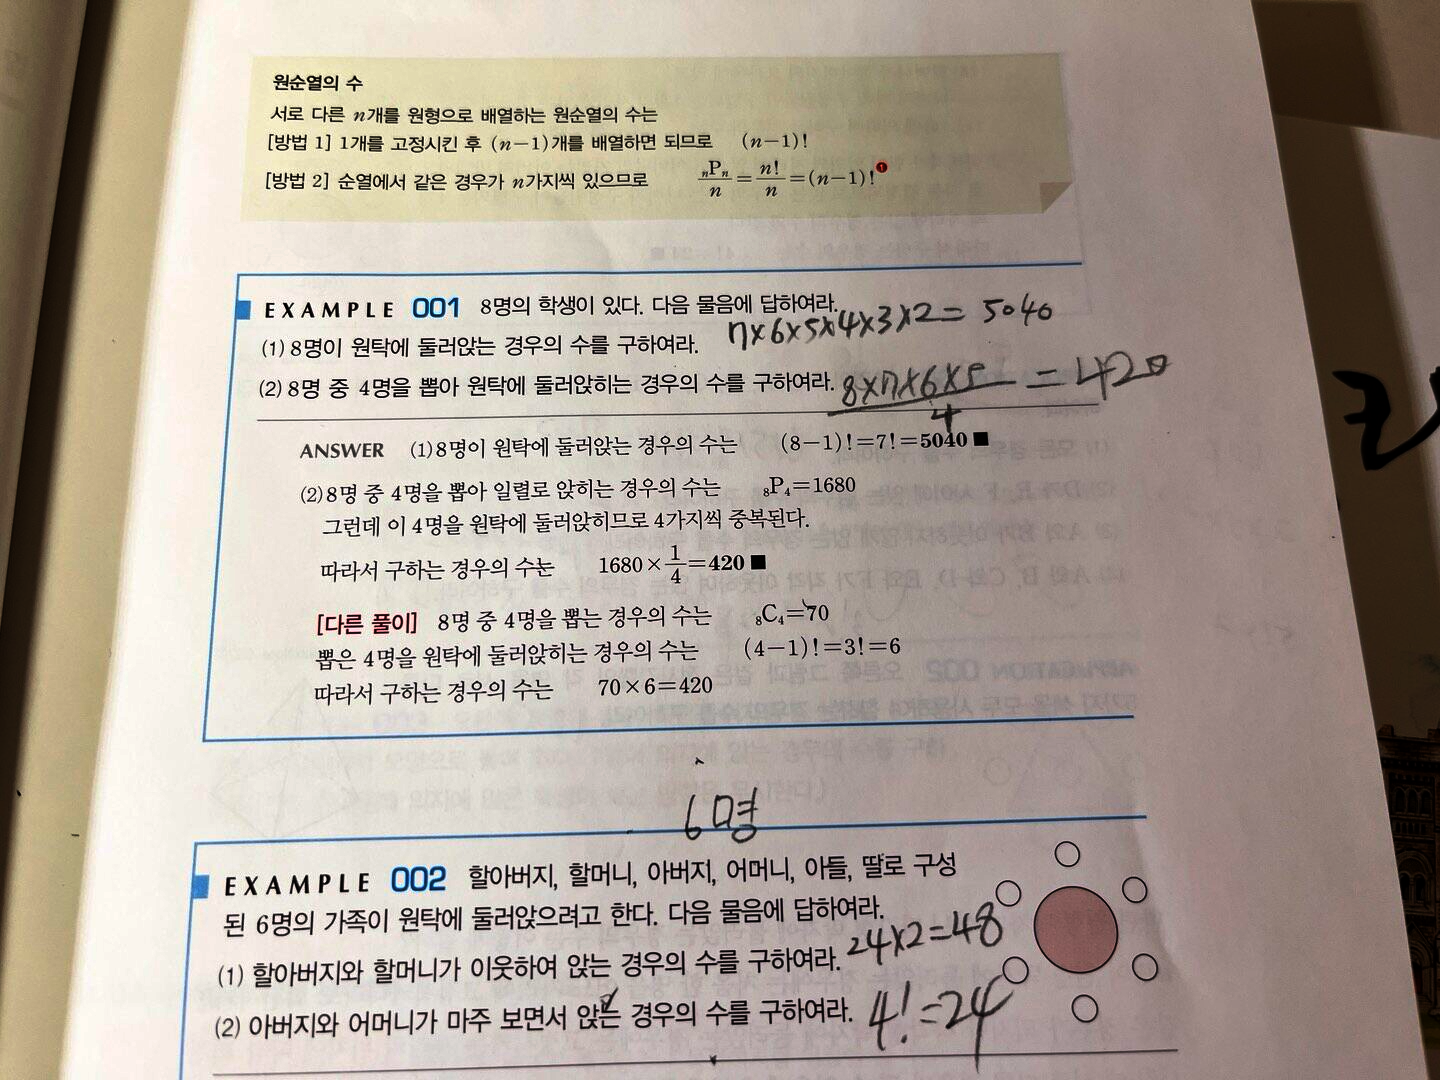 원순열의 수
서로 다른 n개를 원형으로 배열하는 원순열의 수는
[방법 1] 1개를 고정시킨 후 (n−1)개를 배열하면 되므로 (n−1)!
[방법 2] 순열에서 같은 경우가 n가지씩 있으므로 ₙPₙ/n = n!/n = (n−1)!❶
EXAMPLE 001 8명의 학생이 있다. 다음 물음에 답하여라.
7×6×5×4×3×2= 5040
(1) 8명이 원탁에 둘러앉는 경우의 수를 구하여라.
(2) 8명 중 4명을 뽑아 원탁에 둘러앉히는 경우의 수를 구하여라. 8×7×6×5/4 = 420
ANSWER (1) 8명이 원탁에 둘러앉는 경우의 수는 (8−1)!=7!=5040 ■
(2) 8명 중 4명을 뽑아 일렬로 앉히는 경우의 수는 ₈P₄=1680
그런데 이 4명을 원탁에 둘러앉히므로 4가지씩 중복된다.
따라서 구하는 경우의 수는 1680×1/4=420 ■
[다른 풀이] 8명 중 4명을 뽑는 경우의 수는 ₈C₄=70
뽑은 4명을 원탁에 둘러앉히는 경우의 수는 (4−1)!=3!=6
따라서 구하는 경우의 수는 70×6=420
6명
EXAMPLE 002 할아버지, 할머니, 아버지, 어머니, 아들, 딸로 구성
된 6명의 가족이 원탁에 둘러앉으려고 한다. 다음 물음에 답하여라.
(1) 할아버지와 할머니가 이웃하여 앉는 경우의 수를 구하여라. 24×2=48
(2) 아버지와 어머니가 마주 보면서 앉는 경우의 수를 구하여라. 4!=24